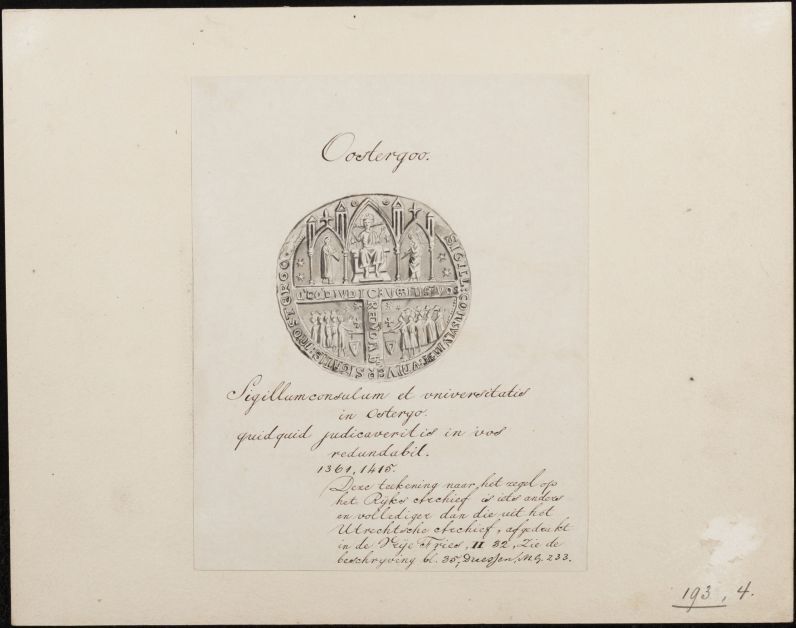 Oostergoo.
SIGILL: CONSVLVM
OSTERGOO
Sigillum consulum et vniversitatis
in Ostergo.
quidquid judicaveritis in vos
redundabit.
1361, 1415.
Deze teekening naar het zegel op
het Rijks Archief is iets anders
en vollediger dan die uit het
Utrechtsche Archief, afgedrukt
in de Vrije Fries, II 32, Zie de
beschryving bl. 35, Driessen, M.G. 233.
193, 4.